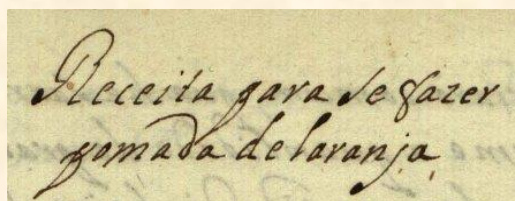 Receita para se fazer
pomada de laranja